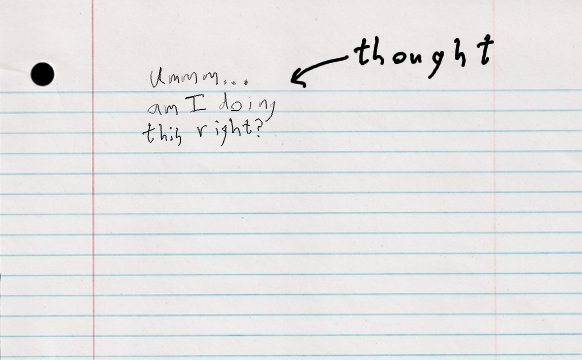 thought
Ummm...
am I doing
this right?